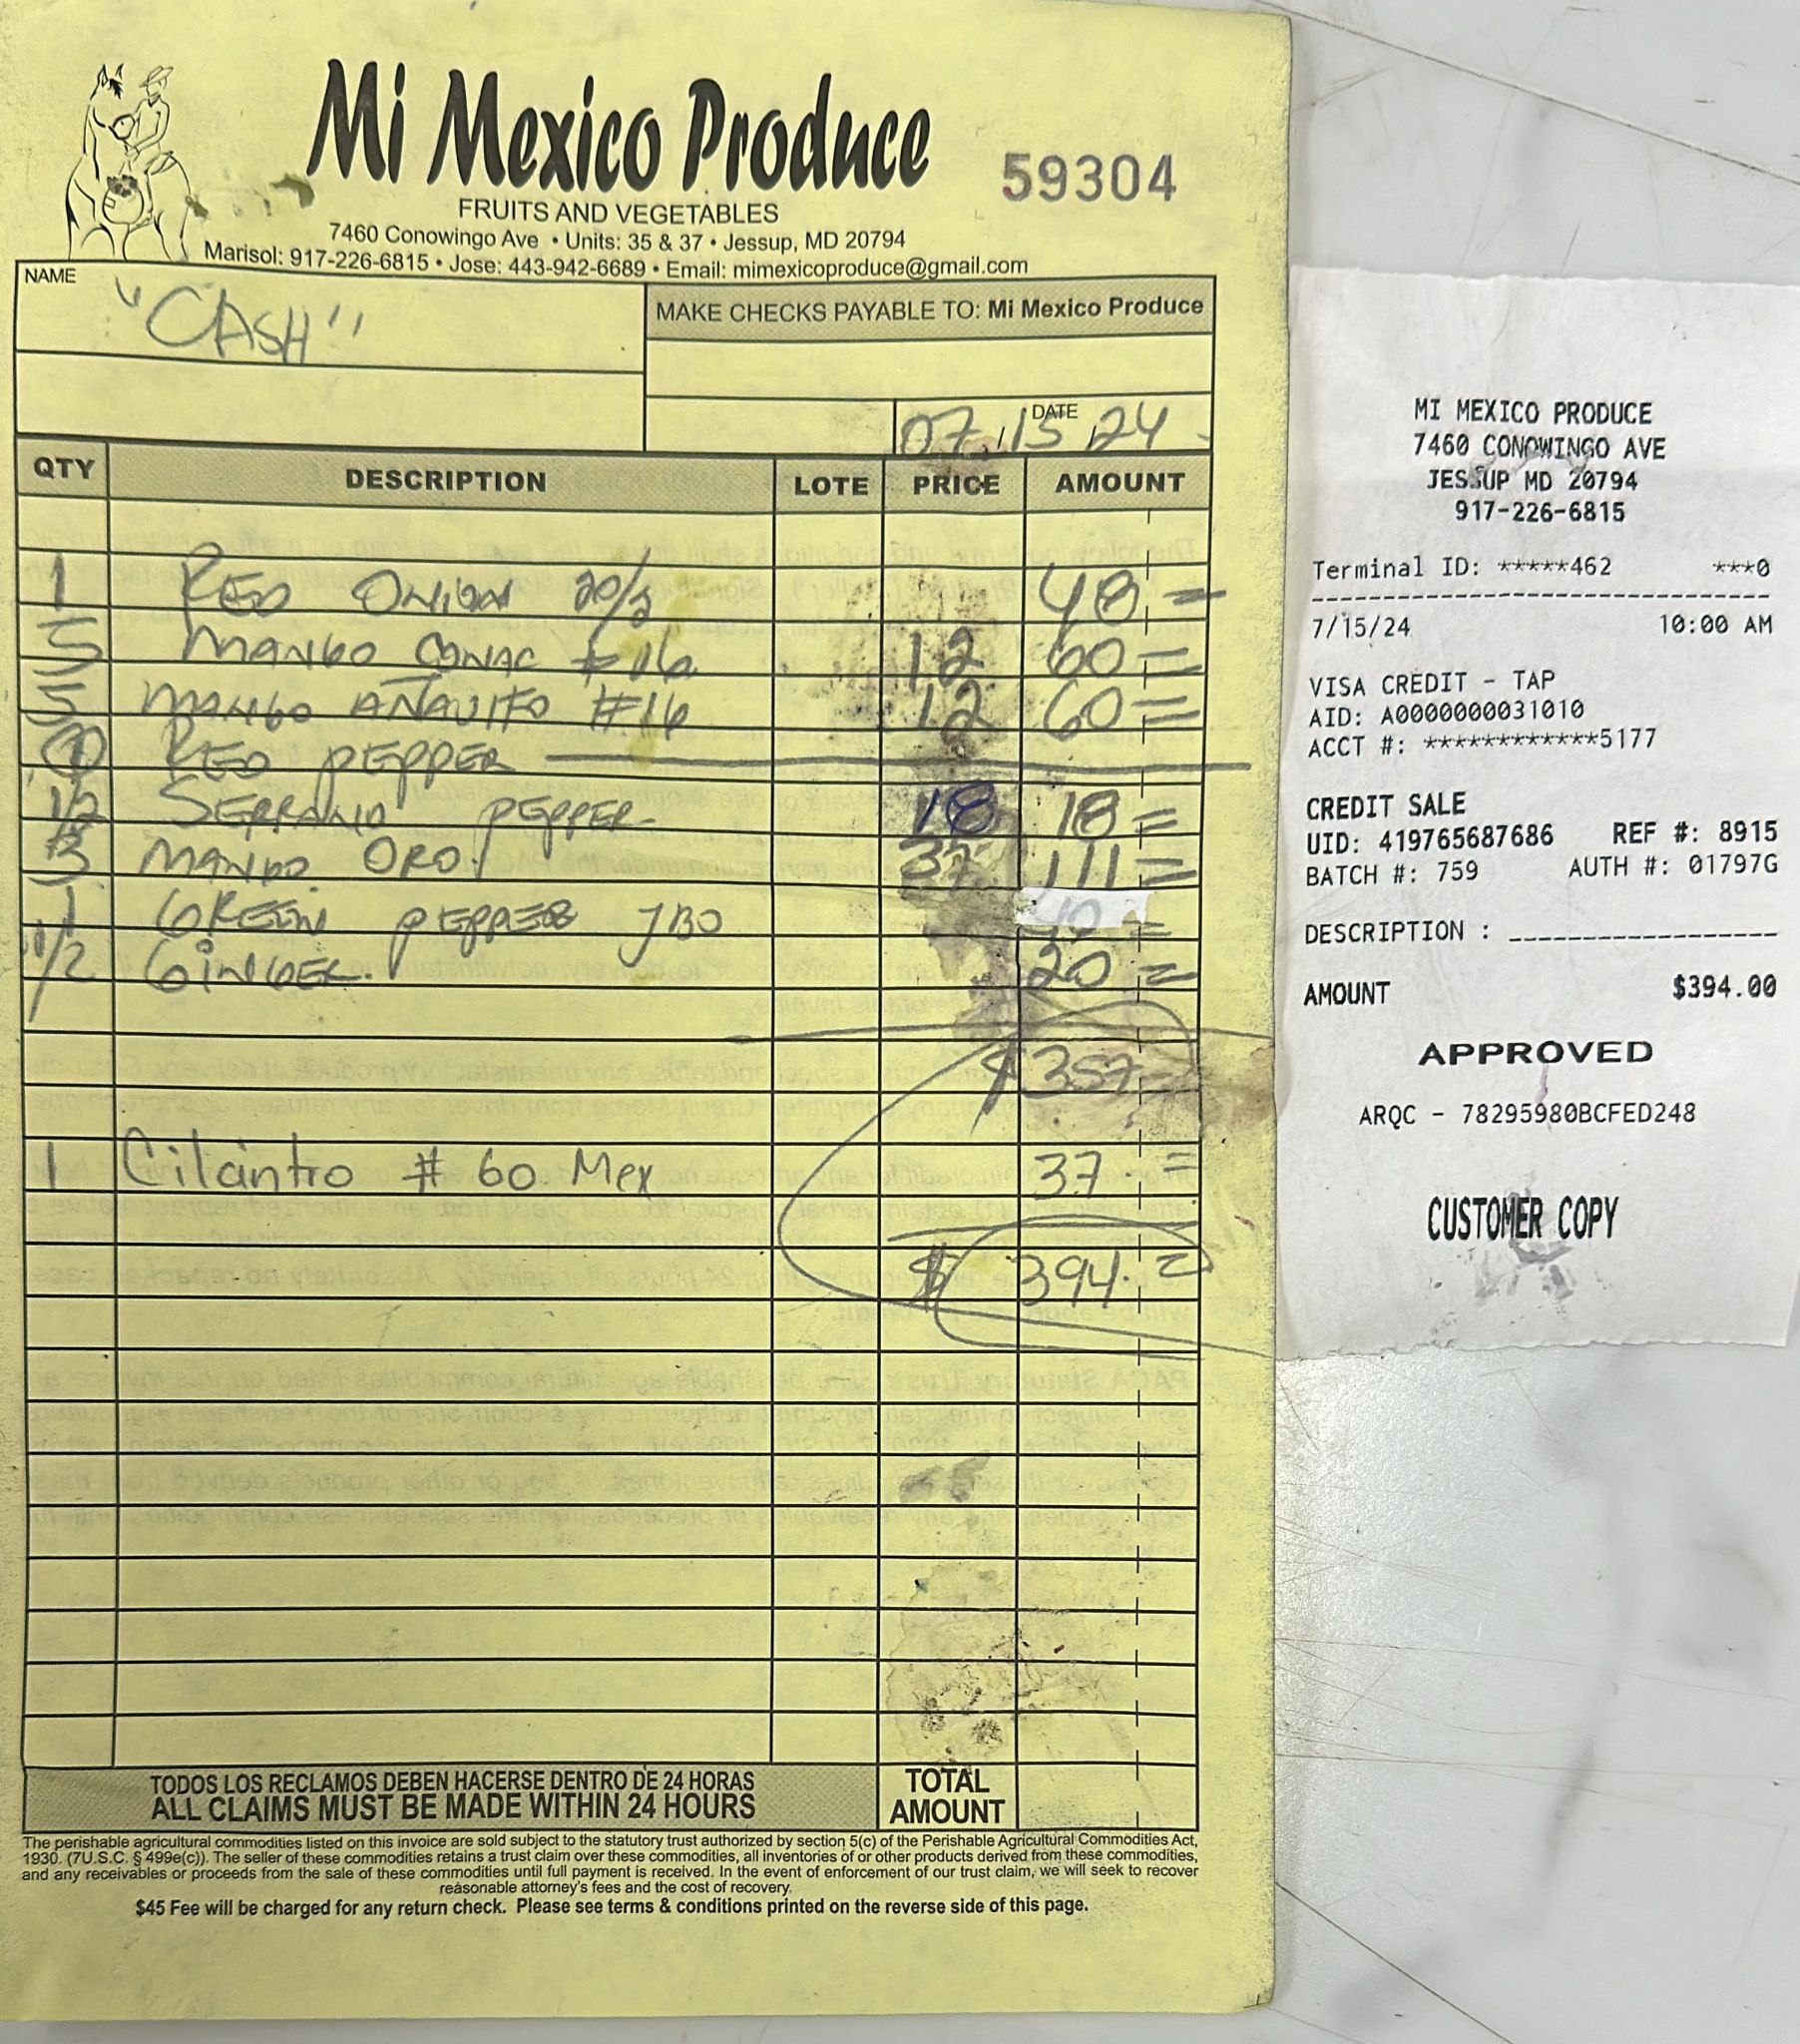 Mi Mexico Produce
59304
FRUITS AND VEGETABLES
7460 Conowingo Ave • Units: 35 & 37 • Jessup, MD 20794
Marisol: 917-226-6815 • Jose: 443-942-6689 • Email: mimexicoproduce@gmail.com
NAME
"CASH"
MAKE CHECKS PAYABLE TO: Mi Mexico Produce
DATE
07,15,24
QTY DESCRIPTION LOTE PRICE AMOUNT
1 RED ONION 48 =
5 MANGO #16 12 60 =
5 MANGO #16 12 60 =
RED PEPPER
1/2 SERRANO PEPPER 18 18 =
3 MANGO ORO 37 111 =
1 GREEN PEPPER JBO 40 =
1/2 GINGER. 20 =
$ 357
1 Cilantro # 60 Mex 37. =
$ 394. =
TODOS LOS RECLAMOS DEBEN HACERSE DENTRO DE 24 HORAS
ALL CLAIMS MUST BE MADE WITHIN 24 HOURS
TOTAL
AMOUNT
The perishable agricultural commodities listed on this invoice are sold subject to the statutory trust authorized by section 5(c) of the Perishable Agricultural Commodities Act,
1930. (7U.S.C. § 499e(c)). The seller of these commodities retains a trust claim over these commodities, all inventories of or other products derived from these commodities,
and any receivables or proceeds from the sale of these commodities until full payment is received. In the event of enforcement of our trust claim, we will seek to recover
reasonable attorney's fees and the cost of recovery.
$45 Fee will be charged for any return check. Please see terms & conditions printed on the reverse side of this page.
MI MEXICO PRODUCE
7460 CONOWINGO AVE
JESSUP MD 20794
917-226-6815
Terminal ID: *****462 ***0
7/15/24 10:00 AM
VISA CREDIT - TAP
AID: A0000000031010
ACCT #: ************5177
CREDIT SALE
UID: 419765687686 REF #: 8915
BATCH #: 759 AUTH #: 01797G
DESCRIPTION :
AMOUNT $394.00
APPROVED
ARQC - 78295980BCFED248
CUSTOMER COPY